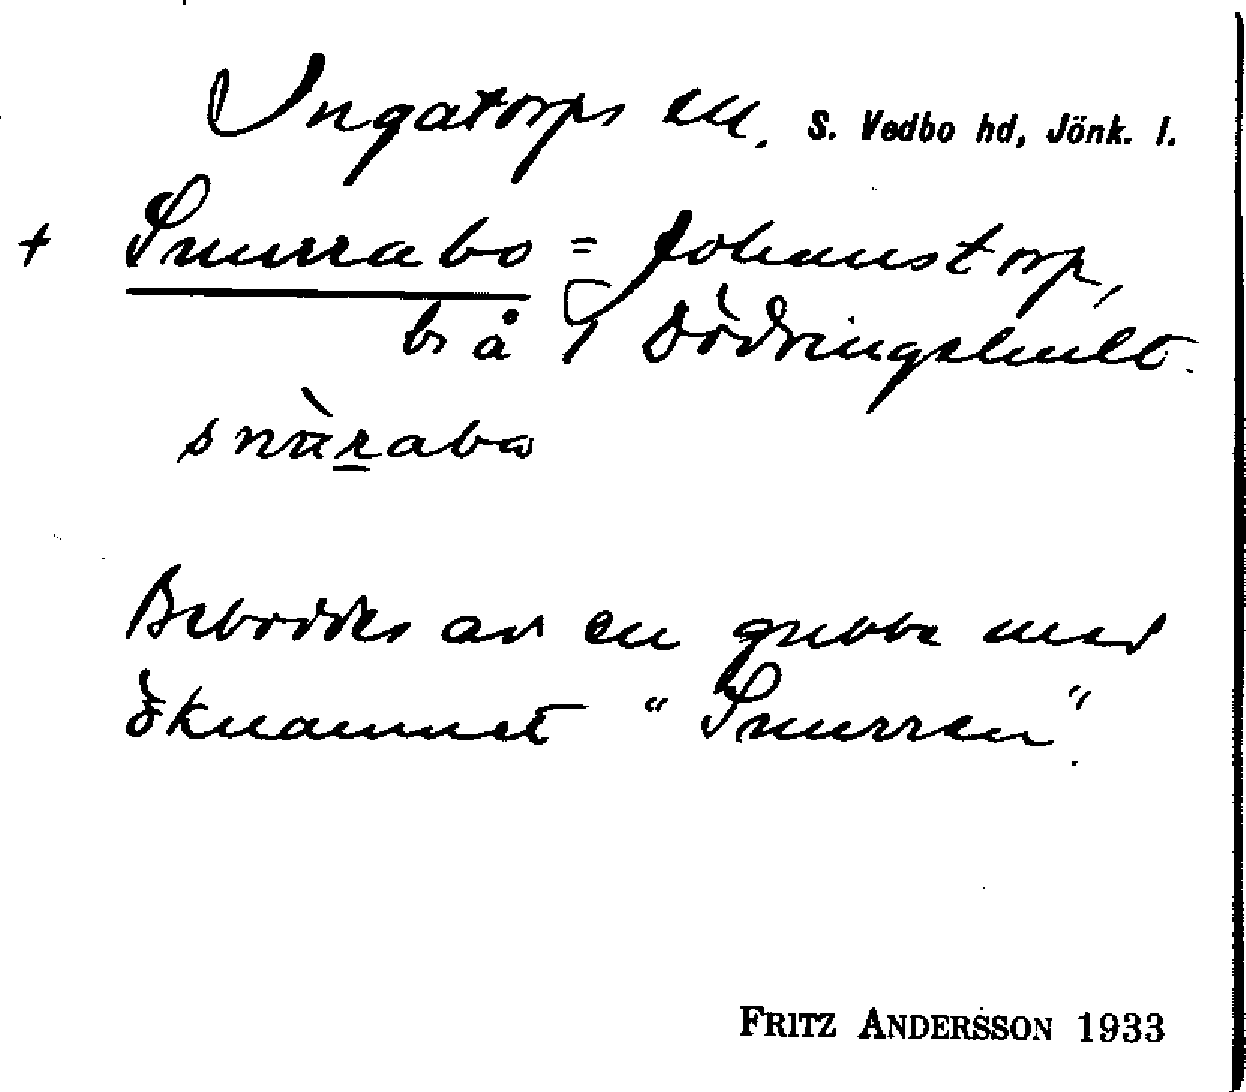 Ingatorps sn. S. Vedbo hd, Jönk. l.
+ Snurrabo = Johanstorp,
bs å Dödringshult.
snùrabω
Beboddes av en gubbe med
öknamnet "Snurren".
FRITZ ANDERSSON 1933